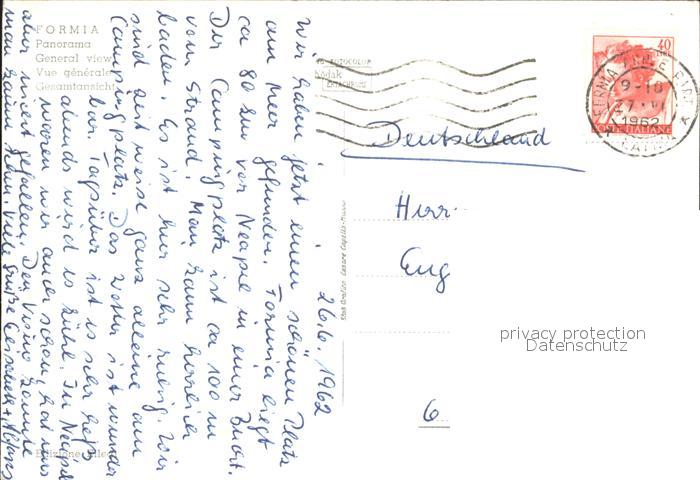 FORMIA
Panorama
General view
Vue générale
Gesamtansicht
40
LIRE
9-10
27.VI
1962
POSTE ITALIANE
Deutschland
Herr
Eug
6
privacy protection
Datenschutz
26.6.1962
Wir haben jetzt einen schönen Platz
am Meer gefunden. Formia liegt
ca 80 km vor Neapel in einer Bucht.
Der Campingplatz ist ca 100 m
vom Strand. Man kann herrlich
baden. Es ist hier sehr ruhig. Wir
sind zeitweise ganz alleine am
Campingplatz. Das Wetter ist wunder
bar. Tagsüber ist es sehr heiß
abends wird es kühl. In Neapel
waren wir auch schon, hat uns
aber nicht gefallen. Den Vesuv konnte
man kaum sehen. Viele Grüße